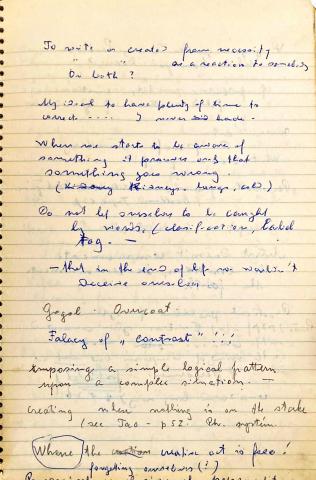 To write or create from necessity
" " " as a reaction to somebody
or both?
My ideal to have plenty of time to
correct ..... I never did have.
When one starts to be aware of
something it proves only that
something goes wrong.
(Kidneys, lungs, etc.)
Do not let ourselves to be caught
by words, (clasification, label
tag. —
— that in the end of life we wouldn't
deceive ourselves
Gogol - Overcoat.
Falacy of „contrast" !!!
imposing a simple logical pattern
upon a complex situation. —
creating where nothing is on the stake
(see Tao - p52 system.
Where the creative act is free!
forgetting ourselves (?)